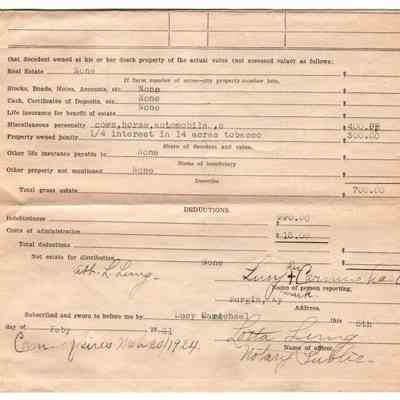 that decedent owned at his or her death property of the actual value (not assessed value) as follows:
Real Estate None $
If farm number of acres—city property number lots.
Stocks, Bonds, Notes, Accounts, etc. None
Cash, Certificates of Deposits, etc. None
Life Insurance for benefit of estate None
Miscellaneous personalty cows, horse, automobile., $ 400.00
Property owned jointly 1/4 interest in 14 acres tobacco 300.00
Share of decedent and value.
Other life insurance payable to None
Name of beneficiary
Other property not mentioned None
Describe
Total gross estate $ 700.00
DEDUCTIONS.
Indebtedness
Costs of administration $ 18.00
Total deductions
Net estate for distribution None
Lucy her Carmichael
x
Name of person reporting.
mark
Burgin, Ky
Subscribed and sworn to before me by Lucy Carmichael this 8th
day of Feby 192
Com expires Nov 20/1924. Notary Public.
Name of officer